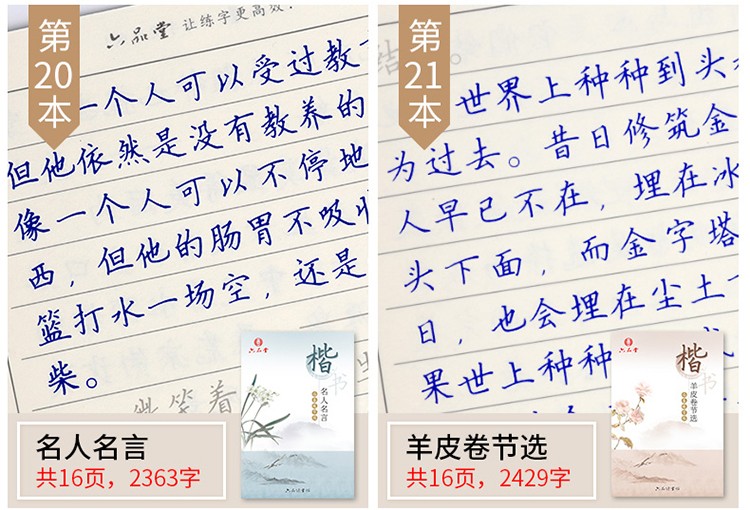 第
20
本
六品堂 让练字更高效
一个人可以受过教
但他依然是没有教养的
像一个人可以不停地
西，但他的肠胃不吸收
篮打水一场空，还是
柴。
些笑着
楷
书
名人名言
六品堂
名人名言
共16页，2363字
第
21
本
世界上种种到头
为过去。昔日修筑金
人早已不在，埋在冰
头下面，而金字塔
日，也会埋在尘土
果世上种种
楷
书
羊皮卷节选
六品堂
羊皮卷节选
共16页，2429字